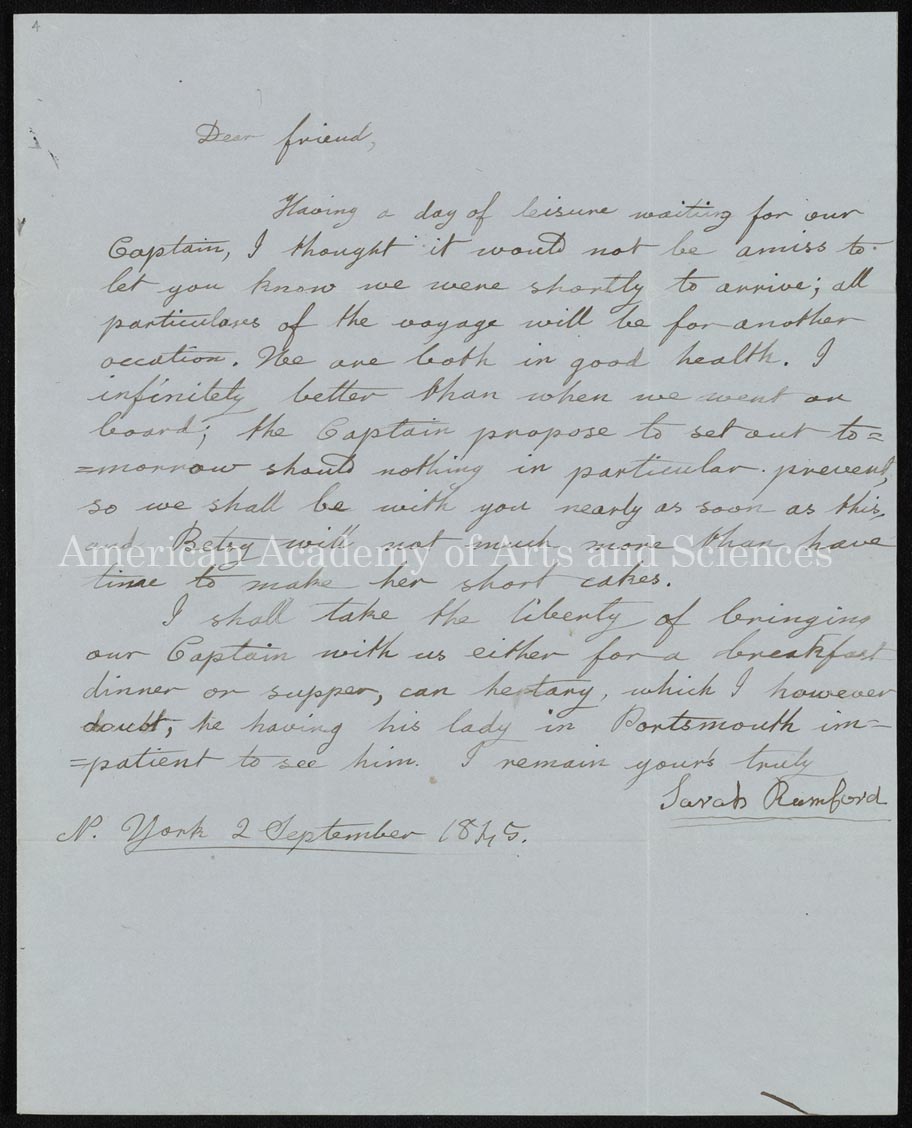 4
Dear friend,
Having a day of leisure waiting for our
Captain, I thought it would not be amiss to
let you know we were shortly to arrive; all
particulars of the voyage will be for another
occation. We are both in good health. I
infinitely better than when we went on
board; the Captain propose to set out to=
=morrow should nothing in particular prevent,
so we shall be with you nearly as soon as this,
and Betsy will not much more than have
American Academy of Arts and Sciences
time to make her short cakes.
I shall take the liberty of bringing
our Captain with us either for a breakfast
dinner or supper, can he tary, which I however
doubt, he having his lady in Portsmouth im=
=patient to see him. I remain your's truly
Sarah Rumford
N. York 2 September 1845.